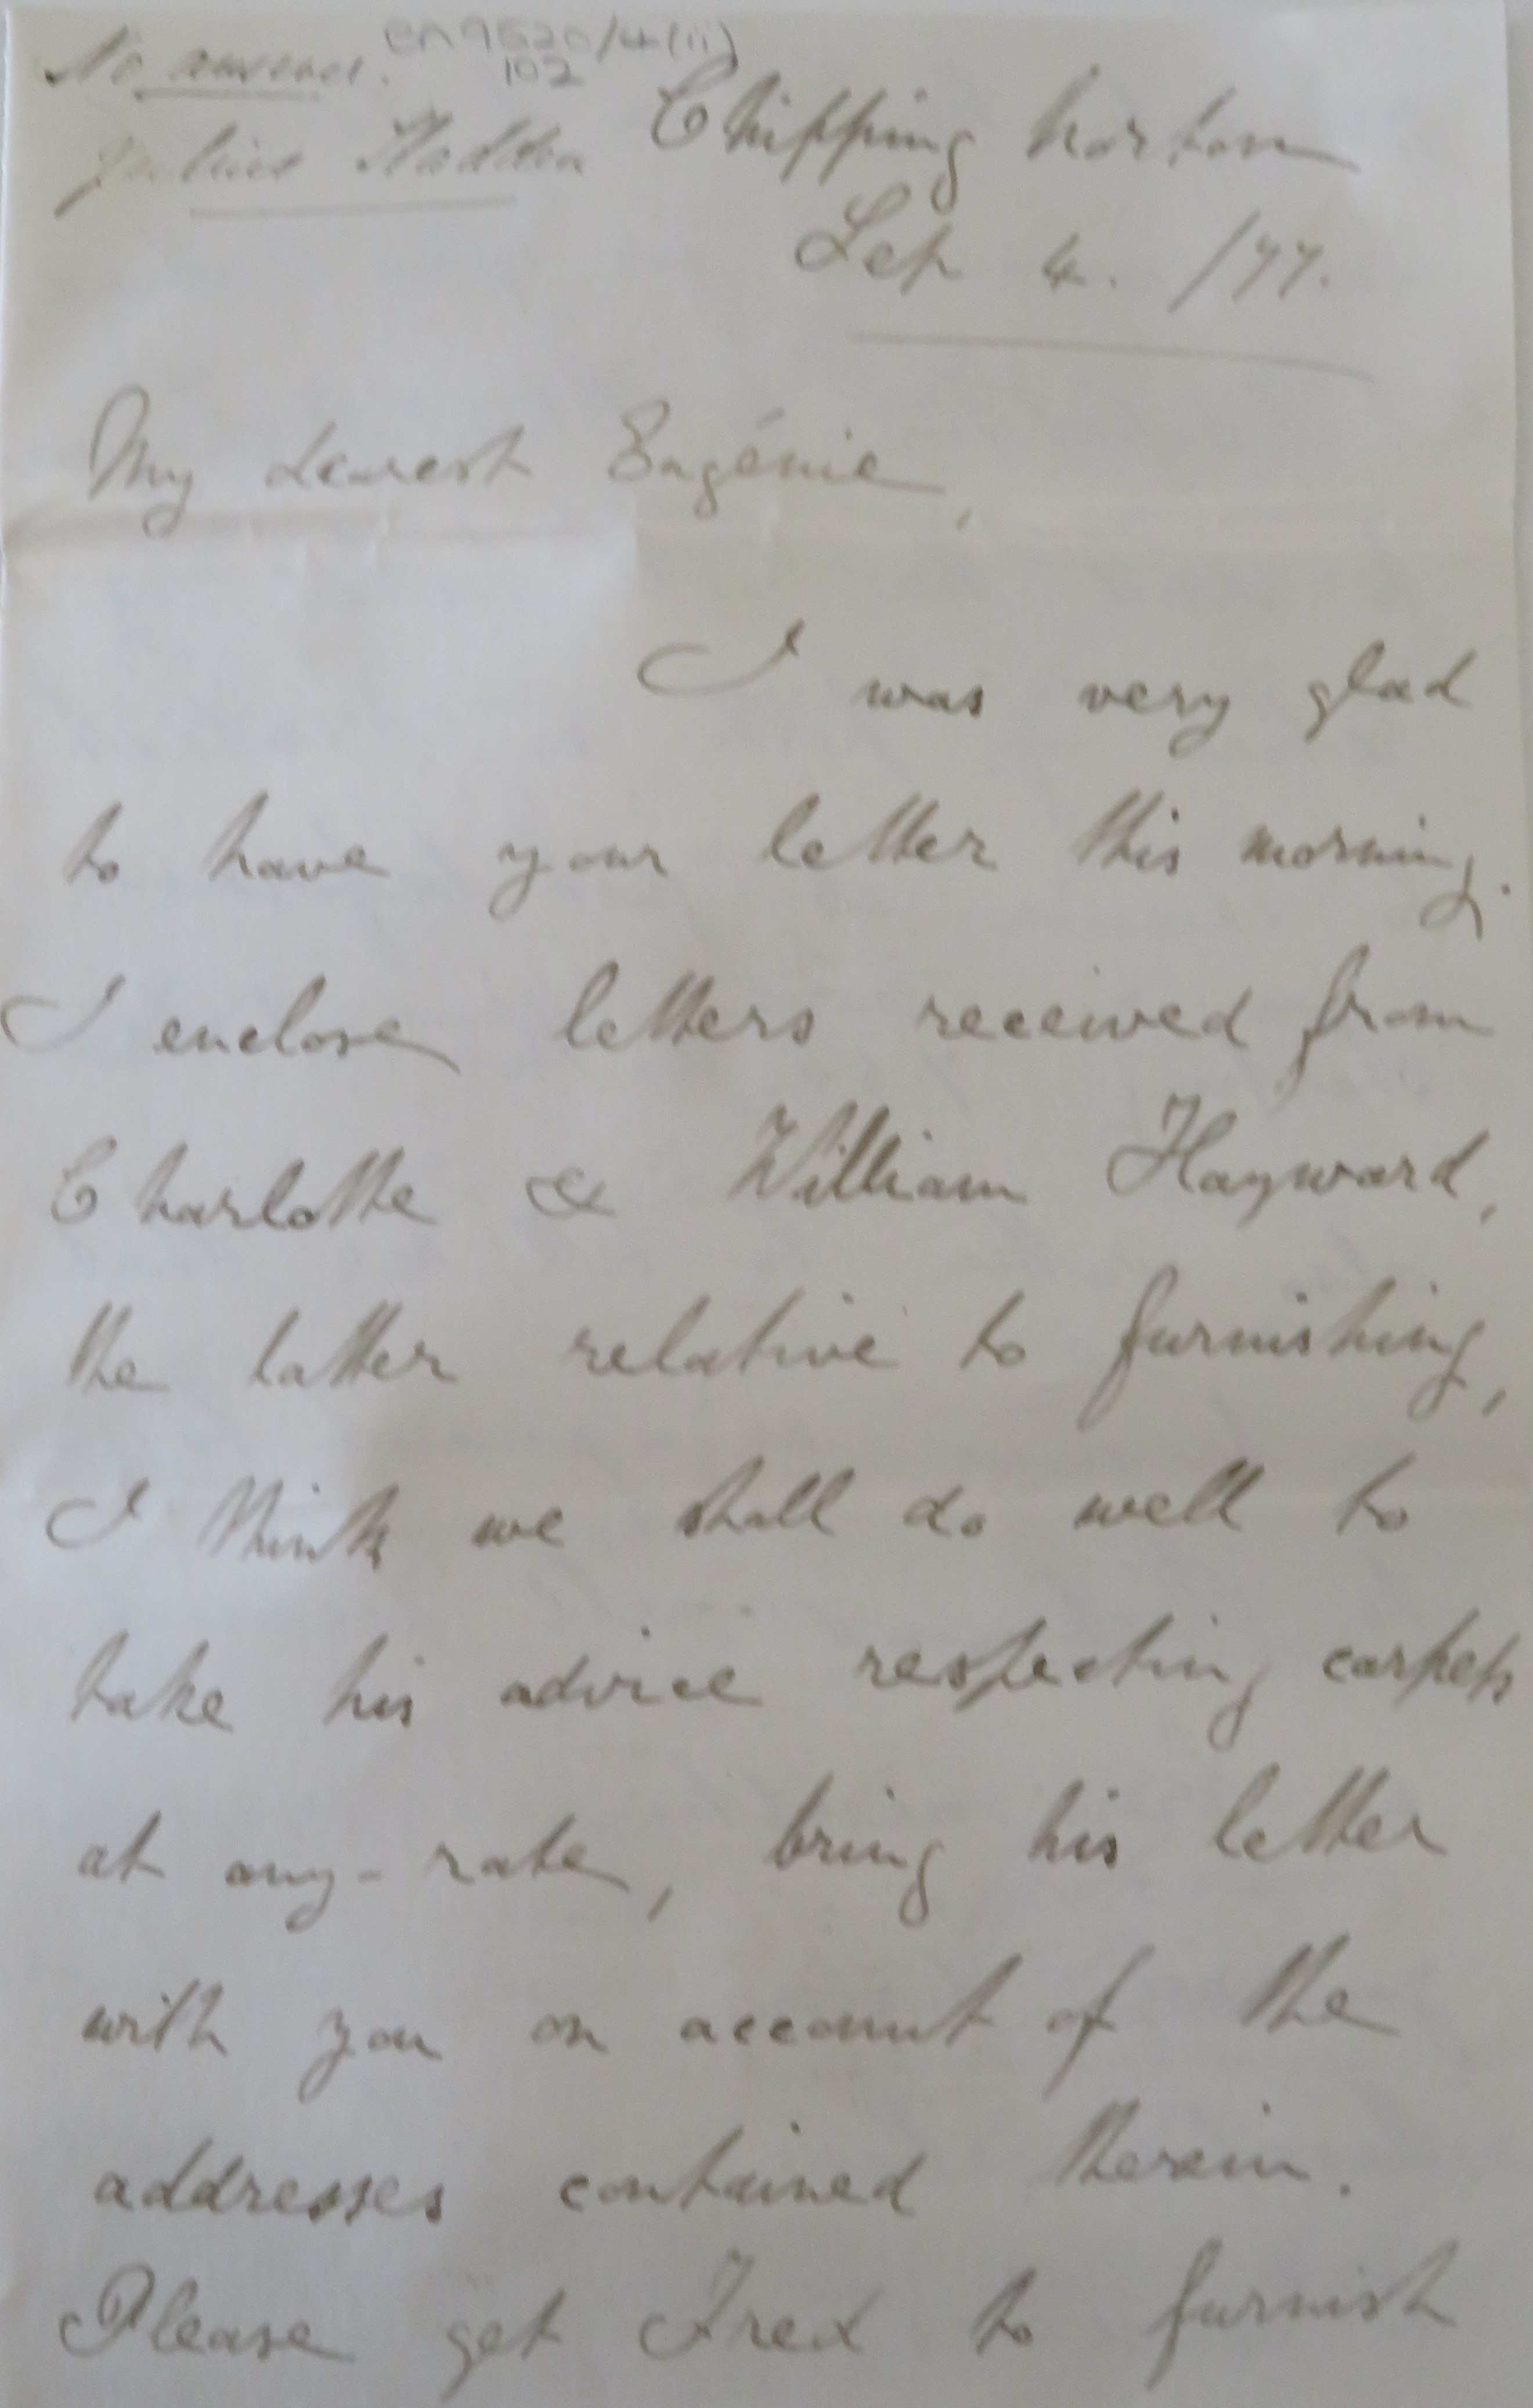 No answer. en9520/4(ii)
102
Julius Haddon
Chipping Norton
Sep 4. /77.
My dearest Eugénie,
I was very glad
to have your letter this morning.
I enclose letters received from
Charlotte & William Hayward,
the latter relative to furnishing,
I think we shall do well to
take his advice respecting carpets
at any-rate, bring his letter
with you on account of the
addresses contained therein.
Please get Fred to furnish